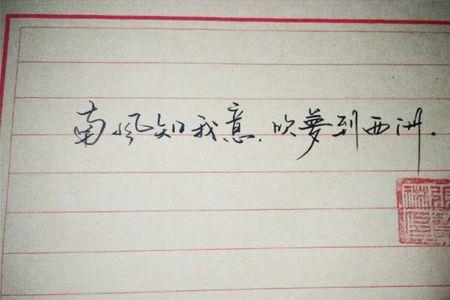 南风知我意,吹夢到西洲.